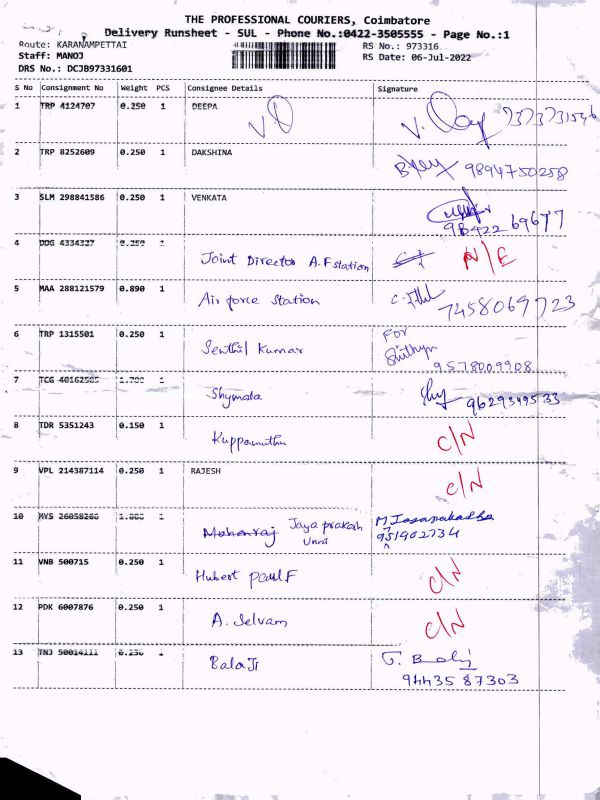 THE PROFESSIONAL COURIERS, Coimbatore
Delivery Runsheet - SUL - Phone No.:0422-3505555 - Page No.:1
Route: KARANAMPETTAI RS No.: 973316
Staff: MANOJ RS Date: 06-Jul-2022
DRS No.: DCJB97331601
S No Consignment No Weight PCS Consignee Details Signature
1 TRP 4124707 0.250 1 DEEPA 7373731546
2 TRP 8252609 0.250 1 DAKSHINA 9894750258
3 SLM 298841586 0.250 1 VENKATA 9842269677
4 DDG 4334337 0.350 1 Joint Director A.F station N/E
5 MAA 288121579 0.890 1 Air force Station 7458069723
6 TRP 1315501 0.250 1 Senthil Kumar For
9578009908
7 TCG 40162505 1.700 1 Shymala Shy 9629349533
8 TDR 5351243 0.150 1 Kuppamuthu C/N
9 VPL 214387114 0.250 1 RAJESH C/N
10 MYS 26058266 1 Mohanraj Jaya prakash
Unni 951902734
11 VNB 500715 0.250 1 Hubert paul F C/N
12 PDK 6007876 0.250 1 A. Selvam C/N
13 TNJ 50014111 0.250 1 BalaJi
9443587303